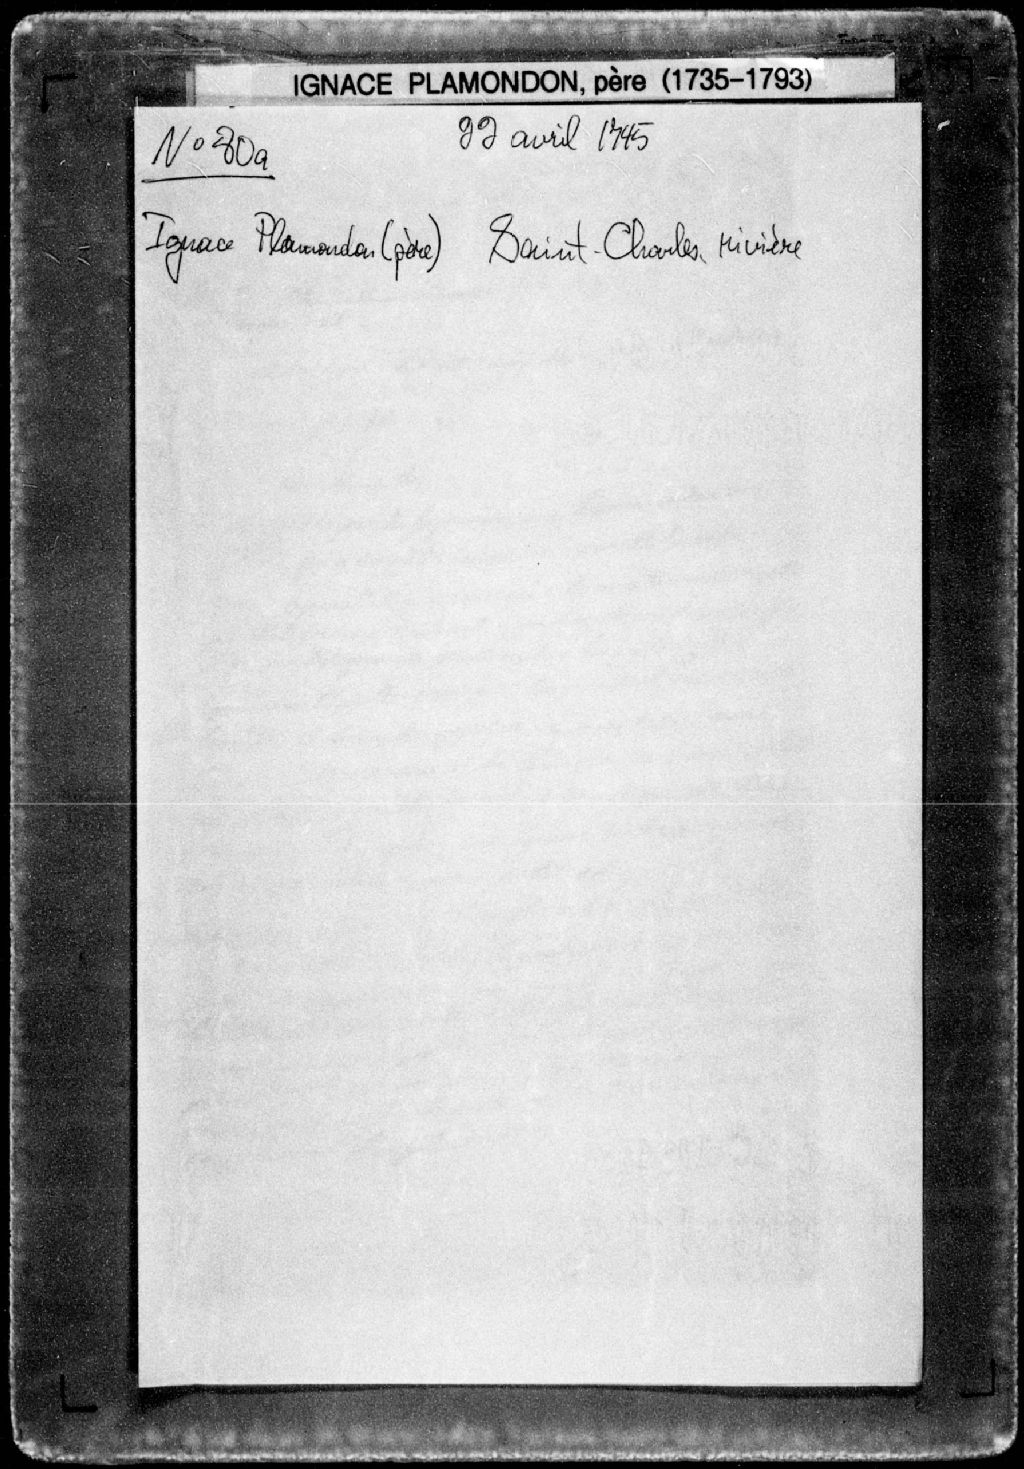 IGNACE PLAMONDON, père (1735–1793)
No 80a 22 avril 1745
Ignace Plamondon (père) Saint-Charles, rivière